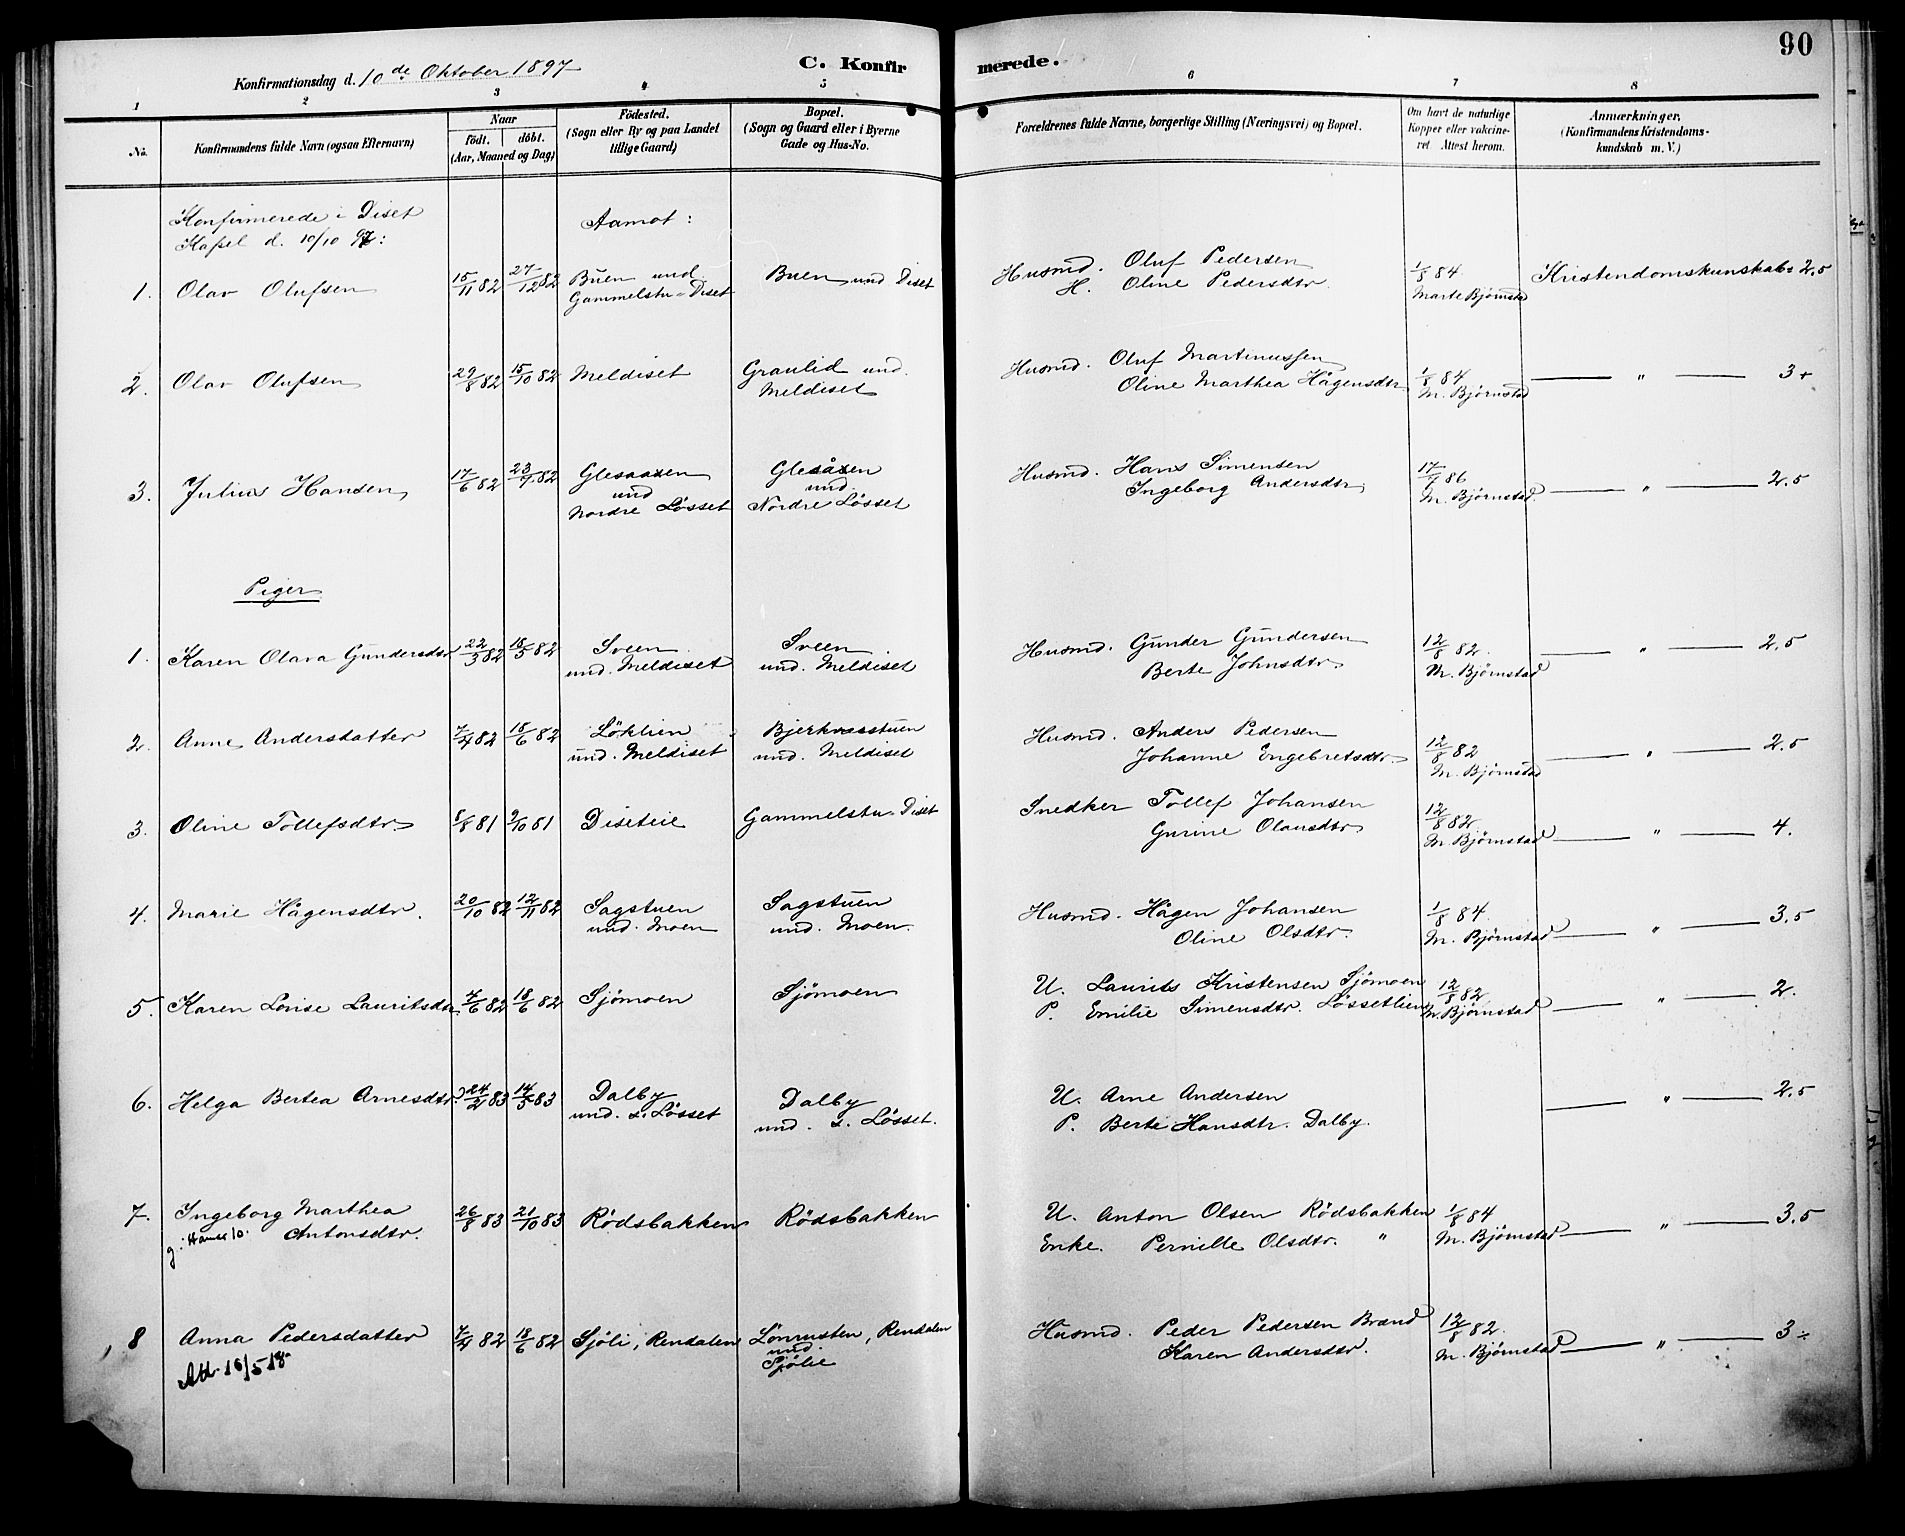 90
Konfirmationsdag d. 10de Oktober 1897
C. Konfirmerede.
1 2 3 4 5 6 7 8
No.
Konfirmandens fulde Navn (ogsaa Efternavn)
Naar
født. døbt.
(Aar, Maaned og Dag)
Fødested.
(Sogn eller By og paa Landet
tillige Gaard)
Bopæl.
(Sogn og Gaard eller i Byerne
Gade og Hus-No.
Forældrenes fulde Navne, borgerlige Stilling (Næringsvei) og Bopæl.
Om havt de naturlige
Kopper eller vakcine-
ret Attest herom.
Anmærkninger,
(Konfirmandens Kristendoms-
kundskab m. V.)
Konfirmerede i Diset
Kapel d. 10/10 97:
Aamot:
1. Olav Olufsen 15/11 82 27/12 82 Buen und. Buen und Diset Husmd. Oluf Pedersen 1/8 84 Kristendomskunskab: 2,5
Gammelstu-Diset H. Oline Pedersdtr. Marte Bjørnstad
2. Olav Olufsen 29/8 82 15/10 82 Meldiset Graulid und. Husmd. Oluf Martinussen 1/8 84 " 3+
Meldiset Oline Marthea Hågensdtr. M. Bjørnstad
3. Julius Hansen 17/6 82 23/7 82 Glesaaxen Glesåxen Husmd. Hans Simensen 17/7 86 " 2.5
und und. Ingeborg Andersdtr. M. Bjørnstad.
Nordre Løsset Nordre Løsset
Piger
1. Karen Olava Gundersdtr. 22/3 82 18/5 82 Sveen Sveen Husmd. Gunder Gundersen 12/8 82. " 2.5
und. Meldiset und. Meldiset Berte Johnsdtr. M. Bjørnstad
2. Anne Andersdatter 7/4 82 18/6 82 Løklien Bjerknesstuen Husmd. Anders Pedersen 12/8 82 " 2.5
und. Meldiset und. Meldiset Johanne Engebretsdtr. M. Bjørnstad
3. Oline Tollefsdtr. 8/8 81 9/10 81 Diseteie Gammelstu-Diset Snedker Tollef Johansen 12/8 82 " 4.
Gurine Olausdtr. M. Bjørnstad
4. Marie Hågensdtr. 20/10 82 12/11 82 Sagstuen Sagstuen Husmd. Hågen Johansen 1/8 84. " 3.5
und. Moen und. Moen. Oline Olsdtr. M. Bjørnstad
5. Karen Lovise Lauritsdtr. 7/6 82 18/6 82 Sjömoen Sjömoen U. Laurits Kristensen Sjömoen 12/8 82 " 2.
P. Emilie Simensdtr. Løssetlien M. Bjørnstad
6. Helga Bertea Arnesdtr. 24/2 83 14/5 83 Dalby Dalby U. Arne Andersen " 2.5
und. s. Løsset und. s. Løsset. P. Berte Hansdtr. Dalby.
7. Ingeborg Marthea 26/8 83 21/10 83 Rödsbakken Rödsbakken U. Anton Olsen Rödsbakken 1/8 84 " 3.5
Antonsdtr. Enke. Pernille Olsdtr. " M. Bjørnstad
8 Anna Pedersdatter 7/4 82 18/6 82 Sjöli, Rendalen Lönrusten, Rendalen Husmd. Peder Pedersen Brænd 12/8 82. " 3÷
Att. 16/5 18 und. Sjölie Karen Andersdtr. M. Bjørnstad